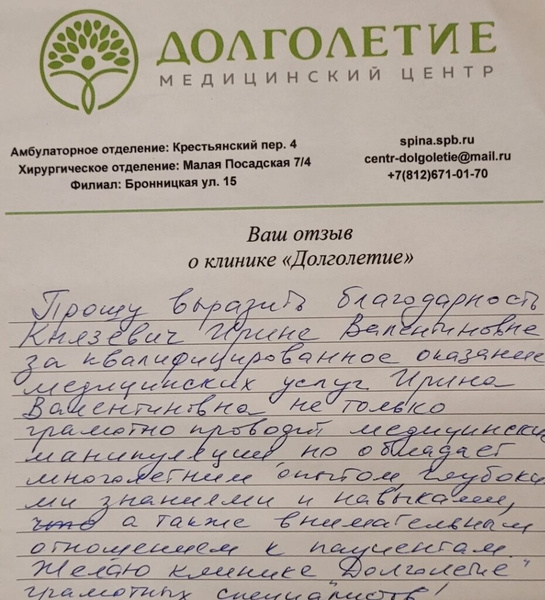 ДОЛГОЛЕТИЕ
МЕДИЦИНСКИЙ ЦЕНТР
Амбулаторное отделение: Крестьянский пер. 4
Хирургическое отделение: Малая Посадская 7/4
Филиал: Бронницкая ул. 15
spina.spb.ru
centr-dolgoletie@mail.ru
+7(812)671-01-70
Ваш отзыв
о клинике «Долголетие»
Прошу выразить благодарность
Князевич Ирине Валентиновне
за квалифицированное оказание
медицинских услуг Ирина
Валентинвна не только
грамотно проводит медицински
манипуляции но обладает
многолетним опытом глубоки
ми знаниями и навыками,
а также внимательным
отношением к пациентам.
Желаю клинике Долголетие"
грамотных специалистов!